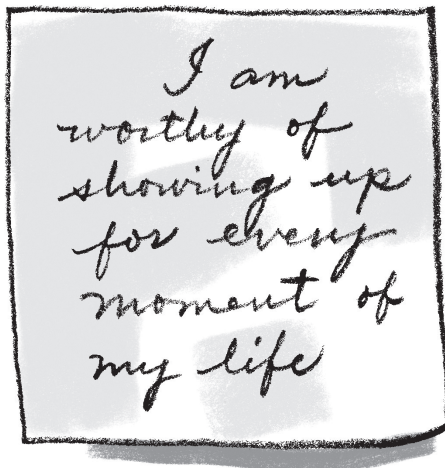 I am
worthy of
showing up
for every
moment of
my life